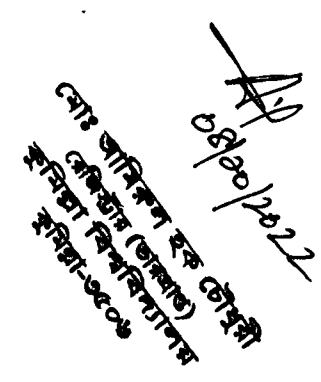 08/20/2022
মোঃ আমিরুল হক চৌধুরী
রেজিস্ট্রার (ভারপ্রাপ্ত)
কুমিল্লা বিশ্ববিদ্যালয়
কুমিল্লা-৩৫০৬